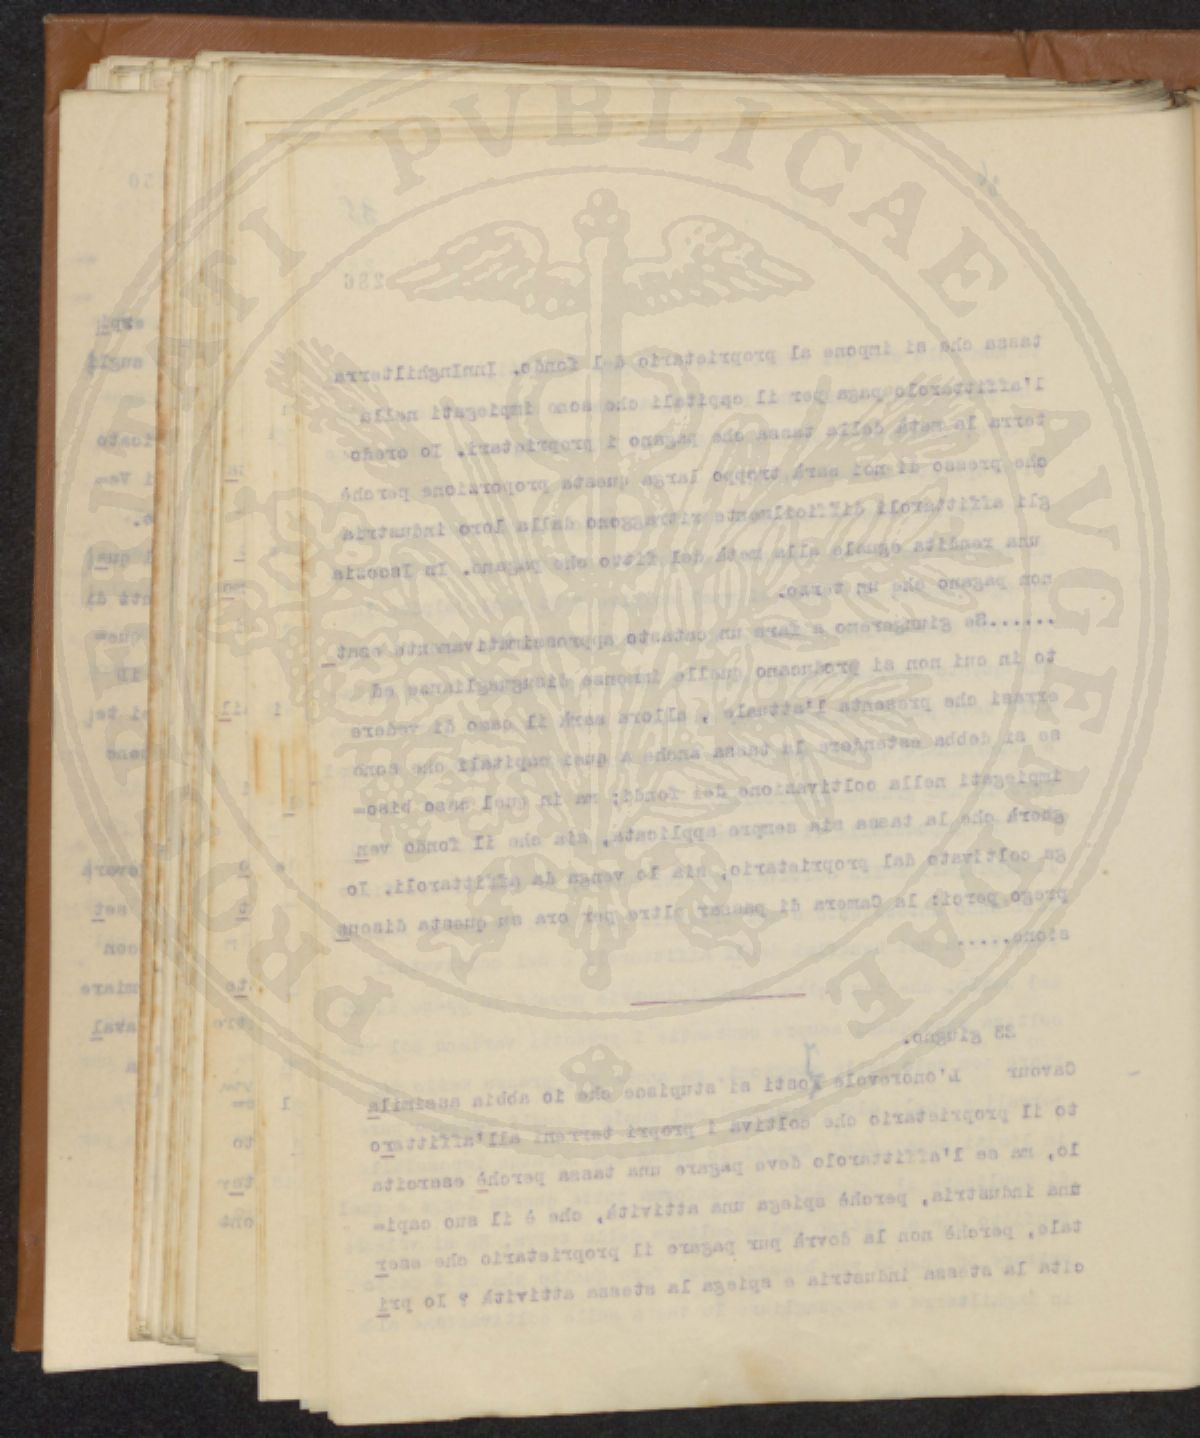 286
tassa che si impone al proprietario del fondo. InnInghilterra
l'affittarolo paga per il capitali che sono impiegati nella
terra la metà della tassa che pagano i proprietari. Io credo
che presso di noi sarà troppo larga questa proporzione perchè
gli affittaroli difficilmente ritraggono dalla loro industria
una rendita eguale alla metà del fitto che pagano. In Iscozia
non pagano che un terzo.
......Se giungeremo a fare un catasto approssimativamente esat
to in cui non si producano quelle immense disuguaglianze ed
errasi che presenta l'attuale , allora sarà il caso di vedere
se si debba estendere la tassa anche a quei capitali che sono
impiegati nella coltivazione dei fondi; ma in quel caso biso=
gherà che la tassa sia sempre applicata, sia che il fondo ven
ga coltivato dal proprietario, sia lo venga da affittaroli. Io
prego perciò la Camera di passar oltre per ora su questa discus
sione.....
23 giugno.
Cavour L'onorevole Josti si stupisce che io abbia assimila
to il proprietario che coltiva i propri terreni all'affittaro
lo, ma se l'affittarolo deve pagare una tassa perchè esercita
una industria, perchè spiega una attività, che è il suo capi=
tale, perchè non la dovrà pur pagare il proprietario che eser
cita la stessa industria e spiega la stessa attività ? Io pri
PROPRIETATI PUBLICAE AVGENDAE